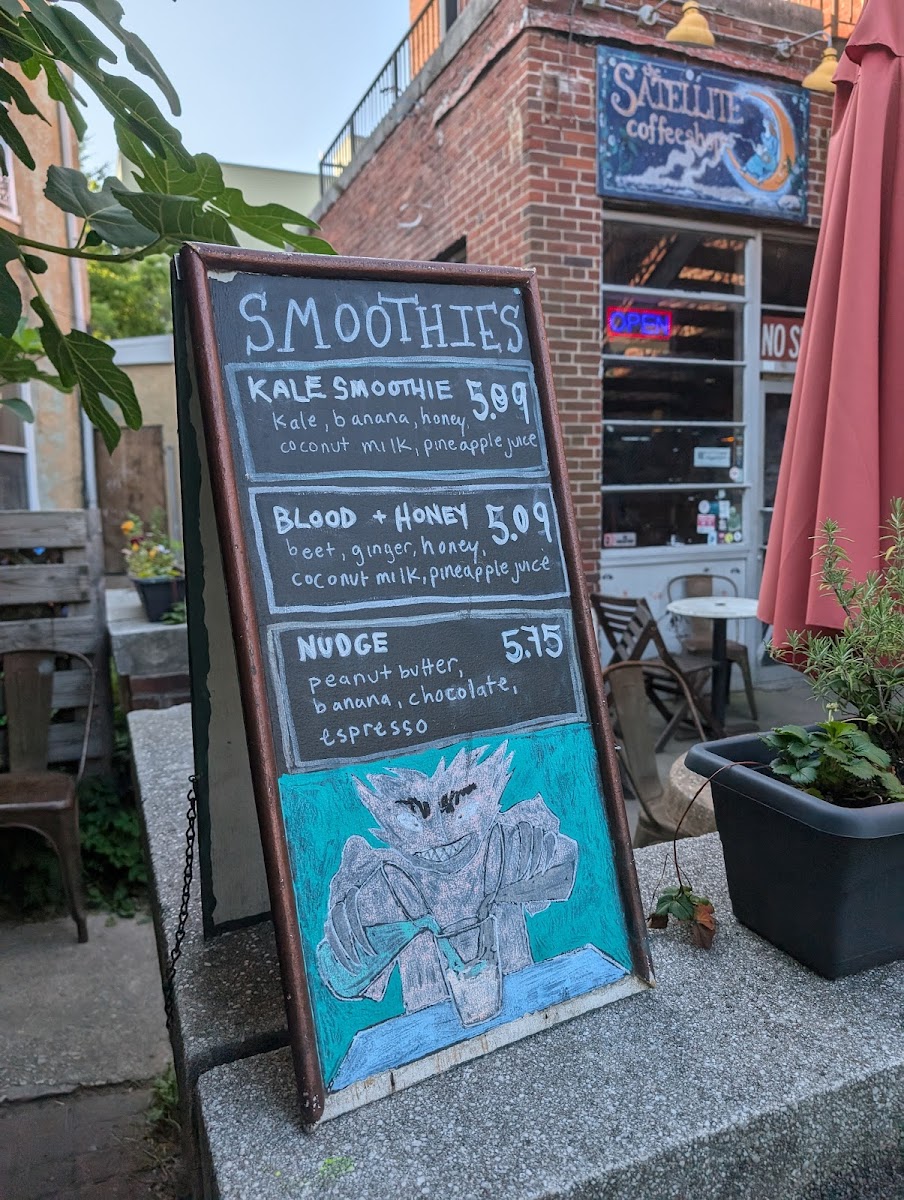 SATELLITE
coffeeshop
OPEN
NO S
SMOOTHIES
KALE SMOOTHIE 5.09
kale, banana, honey,
coconut milk, pineapple juice
BLOOD + HONEY 5.09
beet, ginger, honey,
coconut milk, pineapple juice
NUDGE 5.75
peanut butter,
banana, chocolate,
espresso